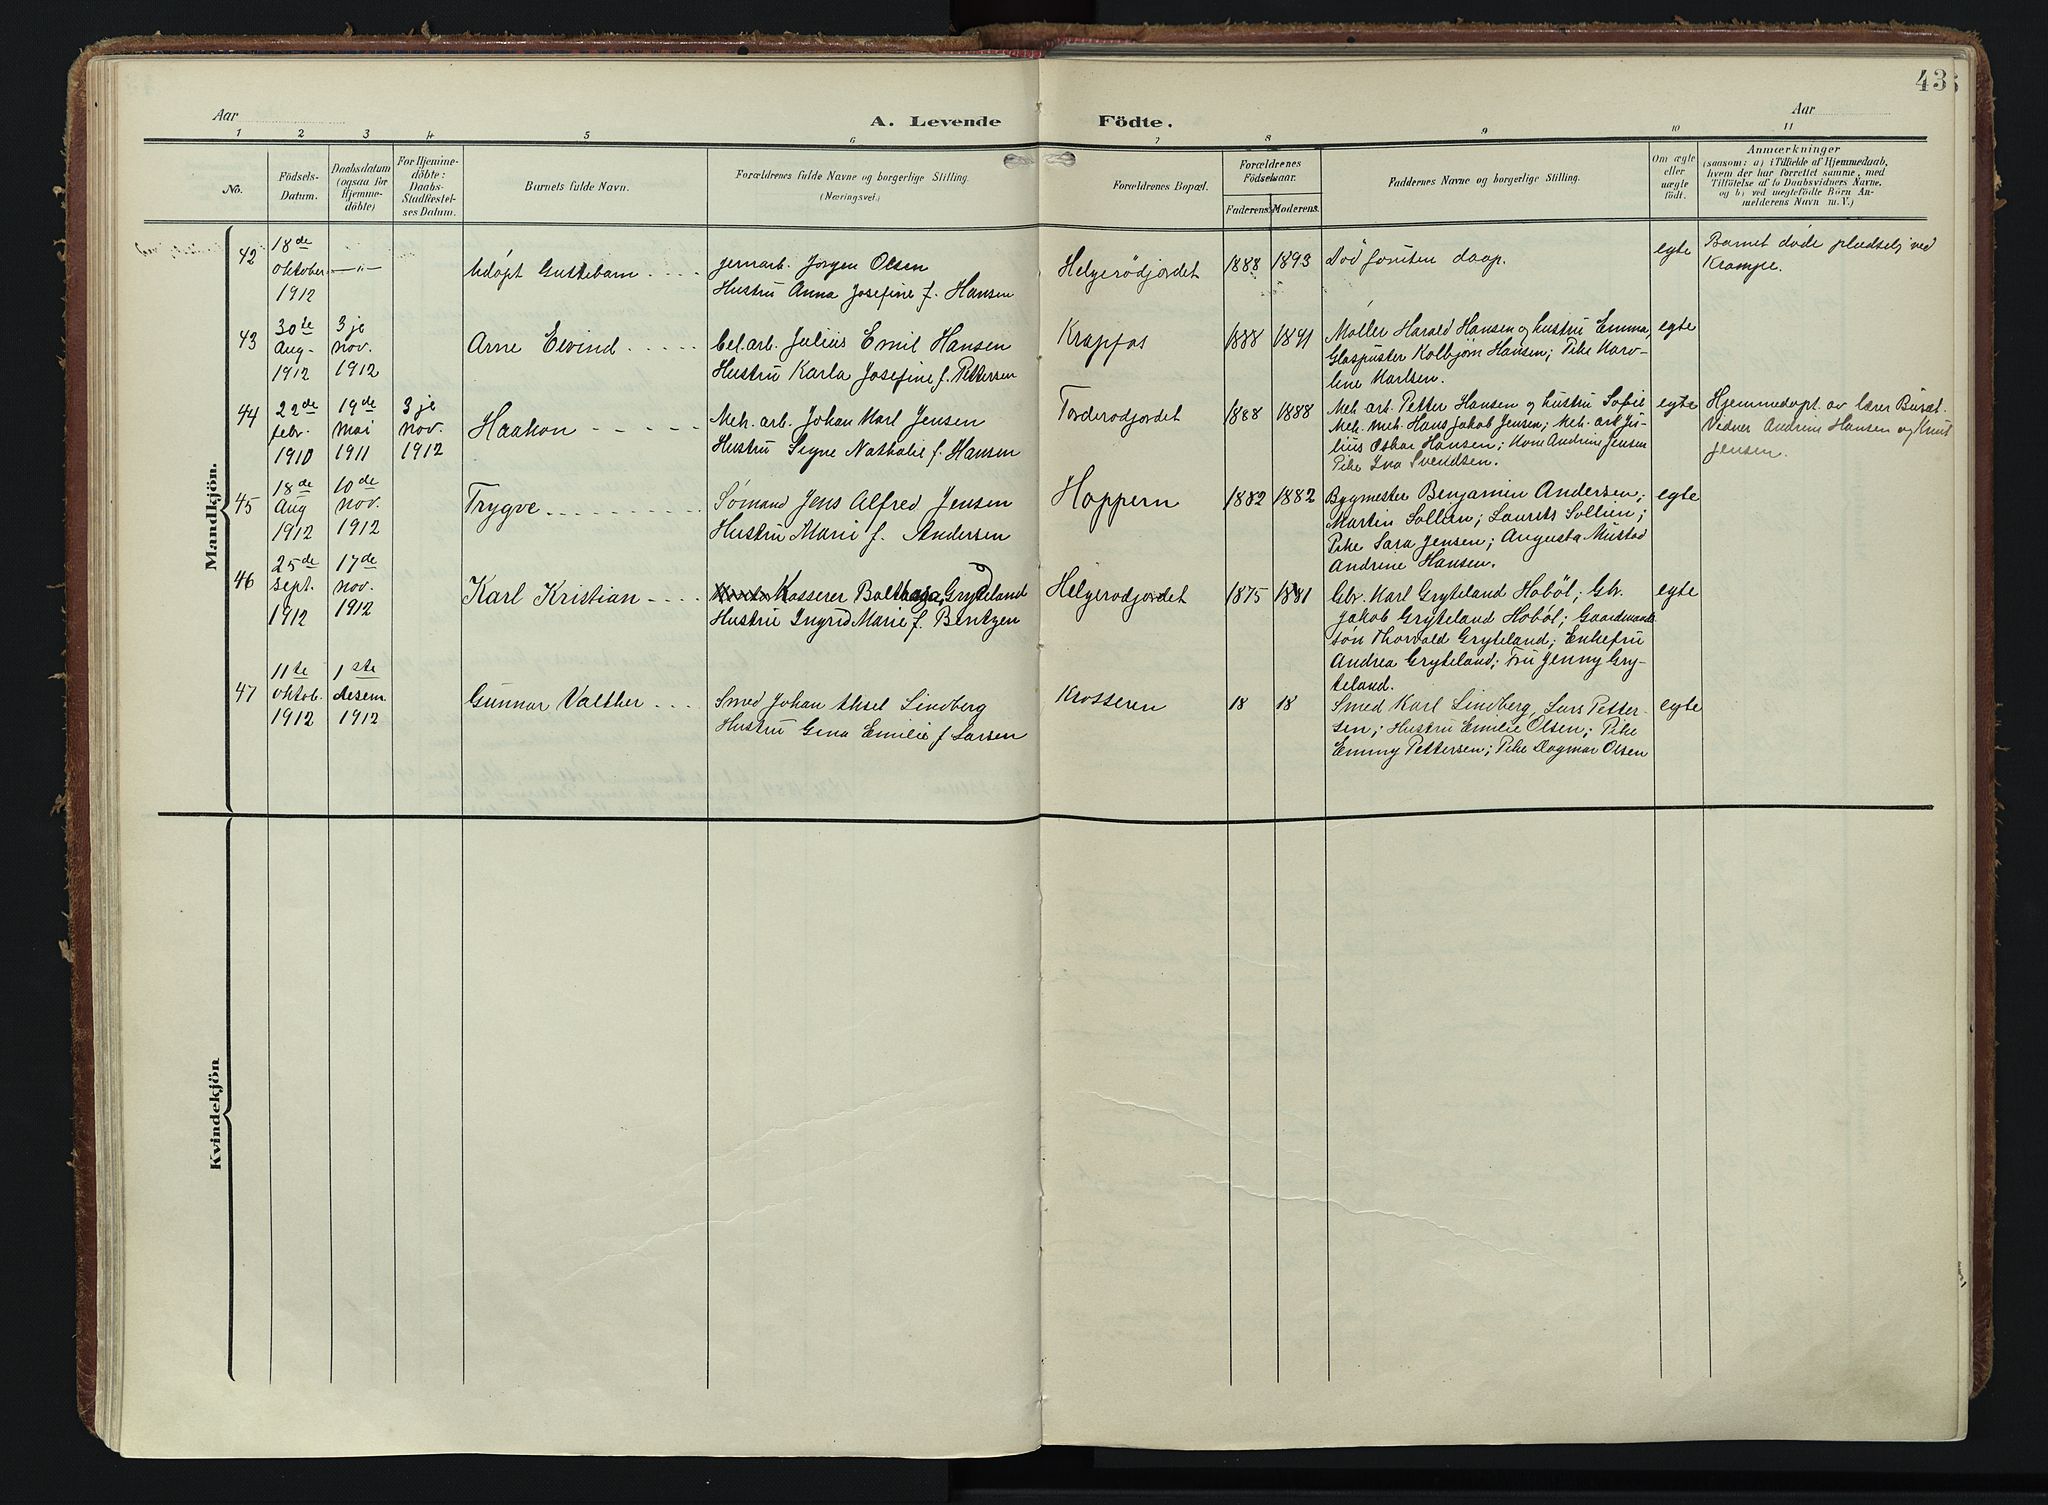 43
Aar
A. Levende
Födte.
Aar
1 2 3 4 5 6 7 8 9 10 11
No.
Födsels-
Datum.
Daabsdatum
(ogsaa for
Hjemme-
döbte)
For Hjemme-
döbte:
Daabs-
Stadfæstel-
ses Datum.
Barnets fulde Navn.
Forældrenes fulde Navne og borgerlige Stilling.
(Næringsvei.)
Forældrenes Bopæl.
Forældrenes
Födselsaar.
Faderens. Moderens.
Faddernes Navne og borgerlige Stilling.
Om ægte
eller
uægte
født.
Anmærkninger
(saasom: a) i Tilfælde af Hjemmedaab,
hvem der har forrettet samme, med
Tilföielse af to Daabsvidners Navne,
og b) ved uægtefödte Börn An-
melderens Navn m. V.)
Mandkjön.
42
18de
oktober
1912
— " —
Udøpt Guttebarn
jernarb. Jørgen Olsen
Hustru Anna Josefine f. Hansen
Helgerødjordet
1888 1893
Død foruten daap.
egte
Barnet døde pludselig ved
Krampe.
43
30te
Aug.
1912
3je
nov.
1912
Arne Eivind
bel.arb. Julius Emil Hansen
Hustru Karla Josefine f. Pettersen
Krapfos
1888 1891
Møller Harald Hansen og hustru Emma,
Glaspuster Kolbjørn Hansen; Pike Karo-
line Karlsen.
egte
44
22de
febr.
1910
19de
mai
1911
3je
nov.
1912
Haakon
Mek. arb. Johan Karl Jensen
Hustru Signe Nathalie f. Hansen
Torderødjordet
1888 1888
Mek. arb. Petter Hansen og hustru Sofie
Mek. mek. Hans Jakob Jensen; Mek. arb Ju-
lius Oskar Hansen; Kone Andrine Jensen
Pike Ina Svendsen.
egte
Hjemmedøpt av lærer
Vidner Andrine Hansen og Knut
Jensen.
45
18de
Aug
1912
10de
nov.
1912
Trygve
Sømand Jens Alfred Jensen
Hustru Marie f. Andersen
Hoppern
1882 1882
Bygmester Benjamin Andersen;
Martin Sollien; Laurits Sollien;
Pike Sara Jensen; Augusta Mustad
Andrine Hansen.
egte
46
25de
sept.
1912
17de
nov.
1912
Karl Kristian
Kasserer Balthazar Gryteland
Hustru Ingrid Marie f. Bentzen
Helgerødjordet
1875 1881
Gbr. Karl Gryteland Hobøl; Gbr.
Jakob Gryteland Hobøl; Gaardmands
søn Thorvald Gryteland; Enkefru
Andrea Gryteland; Fru Jenny Gry-
teland.
egte
47
11te
oktob.
1912
1ste
desem.
1912
Gunnar Valther
Smed Johan Aksel Lindberg
Hustru Gina Emilie f. Larsen
Krosseren
18 18
Smed Karl Lindberg, Lars Petter-
sen; Hustru Emilie Olsen; Pike
Emmy Pettersen; Pike Dagmar Olsen
egte
Kvindekjön